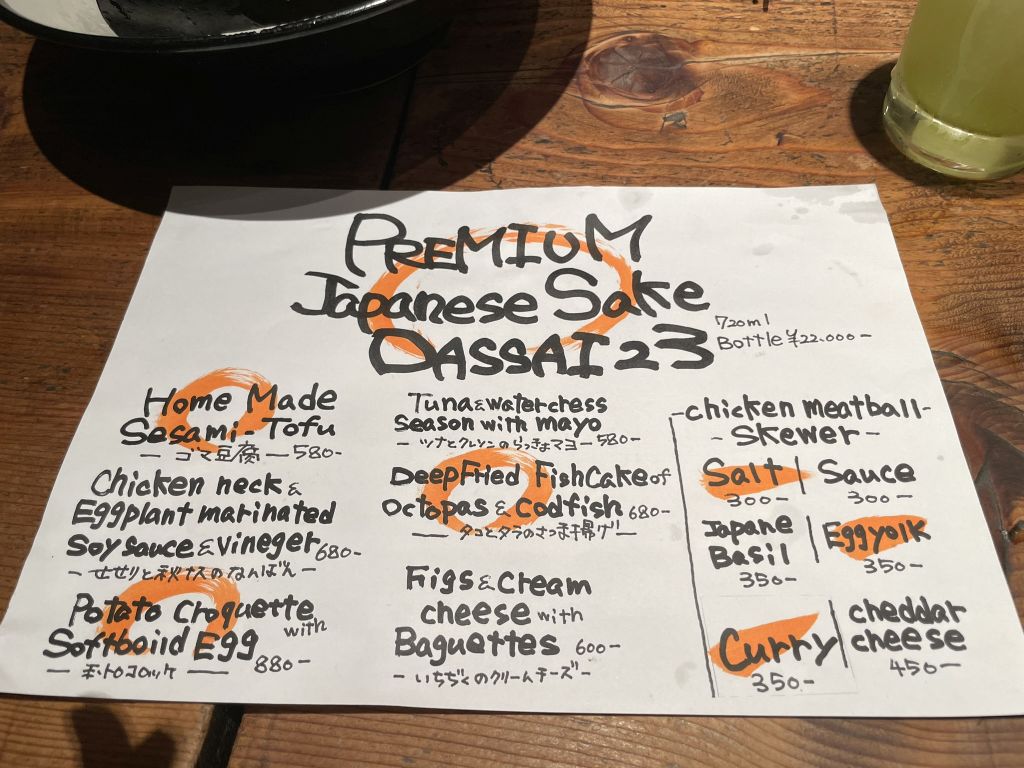 PREMIUM
Japanese Sake
DASSAI 23
720ml
Bottle ¥22.000-
Home Made
Sesami Tofu
- ゴマ豆腐 - 580-
Chicken neck &
Eggplant marinated
Soy sauce & vineger 680-
- せせりと秋ナスのなんばん -
Potato Croquette
with
Softboild Egg 880-
Tuna & watercress
Season with mayo
- ツナとクレソンのらっきょマヨ - 580-
DeepFried FishCake of
Octopas & Codfish 680-
- タコとタラのさつま揚ゲ -
Figs & Cream
cheese with
Baguettes 600-
- いちぢくのクリームチーズ -
-chicken meatball-
- Skewer -
Salt
300-
Sauce
300-
Japane
Basil
350-
Eggyolk
350-
Curry
350-
cheddar
cheese
450-